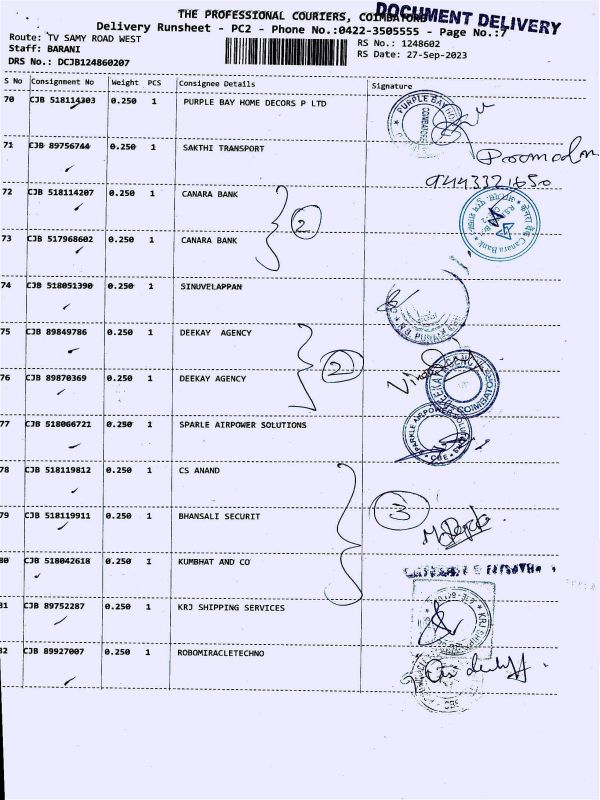 THE PROFESSIONAL COURIERS, COIMBATORE
DOCUMENT DELIVERY
Delivery Runsheet - PC2 - Phone No.:0422-3505555 - Page No.:7
Route: TV SAMY ROAD WEST
RS No.: 1248602
Staff: BARANI
RS Date: 27-Sep-2023
DRS No.: DCJB124860207
S No Consignment No Weight PCS Consignee Details Signature
70 CJB 518114303 0.250 1 PURPLE BAY HOME DECORS P LTD
PURPLE BAY
71 CJB 89756744 0.250 1 SAKTHI TRANSPORT
72 CJB 518114207 0.250 1 CANARA BANK
2
Canara Bank
73 CJB 517968602 0.250 1 CANARA BANK
74 CJB 518051390 0.250 1 SINUVELAPPAN
75 CJB 89849786 0.250 1 DEEKAY AGENCY
2
76 CJB 89870369 0.250 1 DEEKAY AGENCY
DEEKAY AGENCY COIMBATORE
77 CJB 518066721 0.250 1 SPARLE AIRPOWER SOLUTIONS
SPARKLE AIRPOWER SOLUTIONS CBE
78 CJB 518119812 0.250 1 CS ANAND
3
79 CJB 518119911 0.250 1 BHANSALI SECURIT
80 CJB 518042618 0.250 1 KUMBHAT AND CO
81 CJB 89752287 0.250 1 KRJ SHIPPING SERVICES
KRJ
82 CJB 89927007 0.250 1 ROBOMIRACLETECHNO
CBE